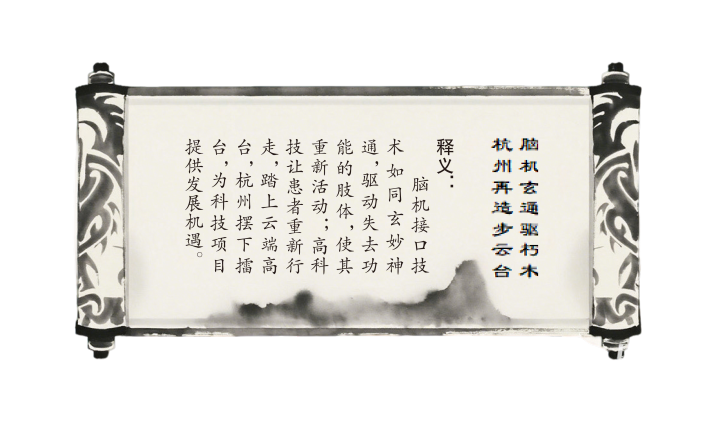 脑机玄通驱朽木
杭州再造步云台
释义：
脑机接口技
术如同玄妙神
通，驱动失去功
能的肢体，使其
重新活动；高科
技让患者重新行
走，踏上云端高
台，杭州摆下擂
台，为科技项目
提供发展机遇。